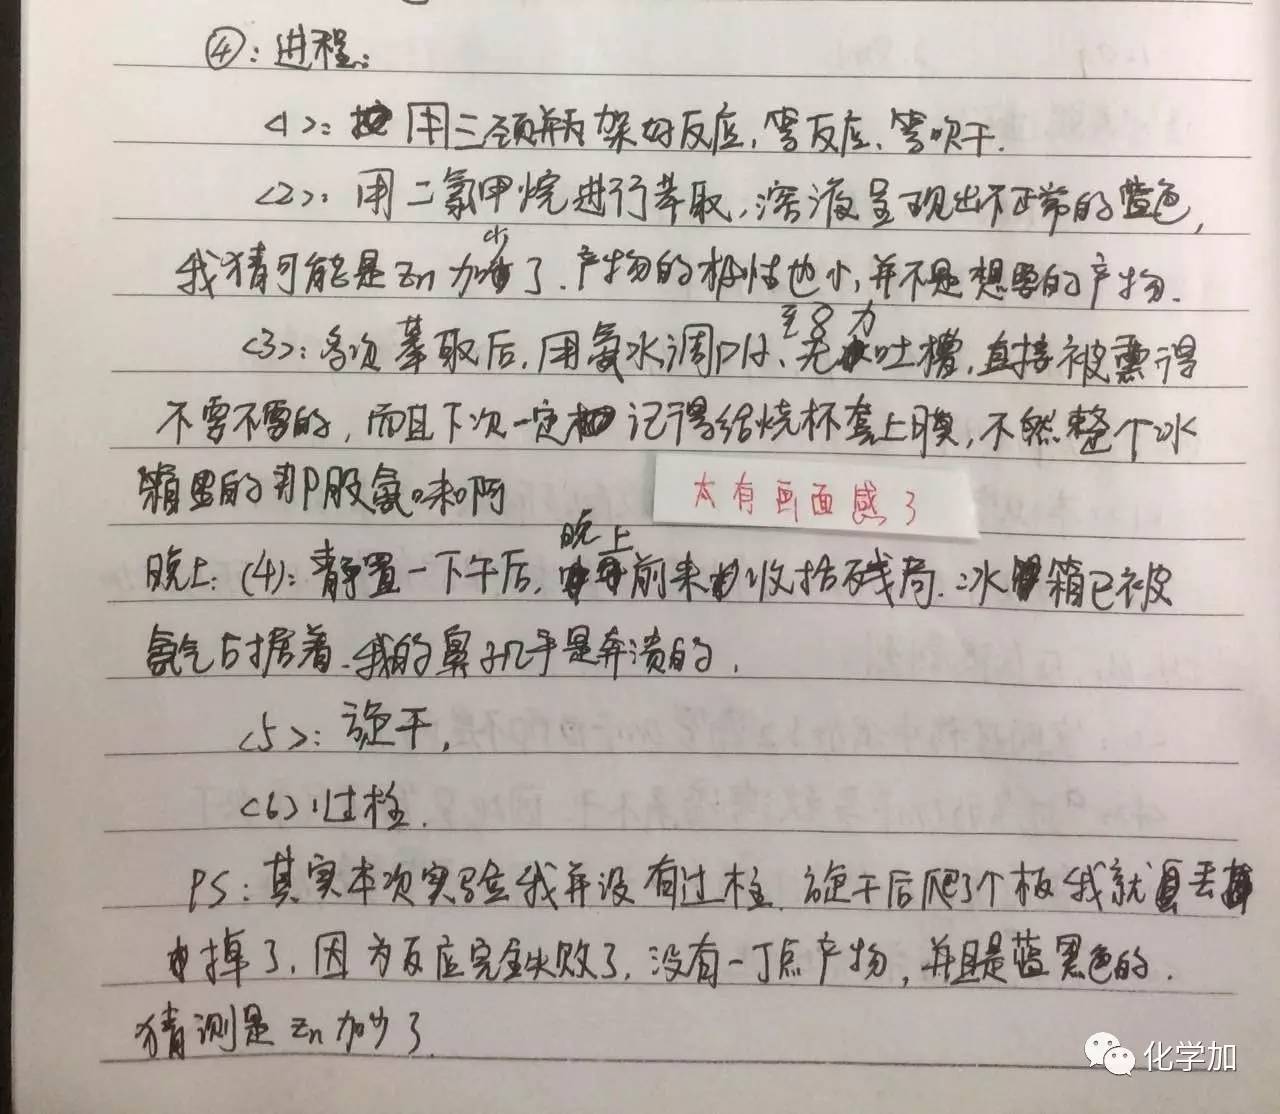 ④:进程:
<1>: 用三颈瓶架好反应,等反应、等吹干.
<2>: 用二氯甲烷进行萃取,溶液呈现出不正常的蓝色,
我猜可能是Zn加少了.产物的极性也小,并不是想要的产物.
<3>:多次萃取后,用氨水调PH至8、无力吐槽,直接被熏得
不要不要的,而且下次一定 记得给烧杯套上膜,不然整个冰
箱里的那股氨味啊
太有画面感了
晚上:(4):静置一下午后,晚上前来收拾残局.冰箱已被
氨气占据着.我的鼻子几乎是奔溃的.
<5>:旋干,
<6>:过柱.
PS:其实本次实验我并没有过柱.旋干后爬了个板我就丢
掉了.因为反应完全失败了.没有一丁点产物,并且是蓝黑色的.
猜测是Zn加少了.
化学加